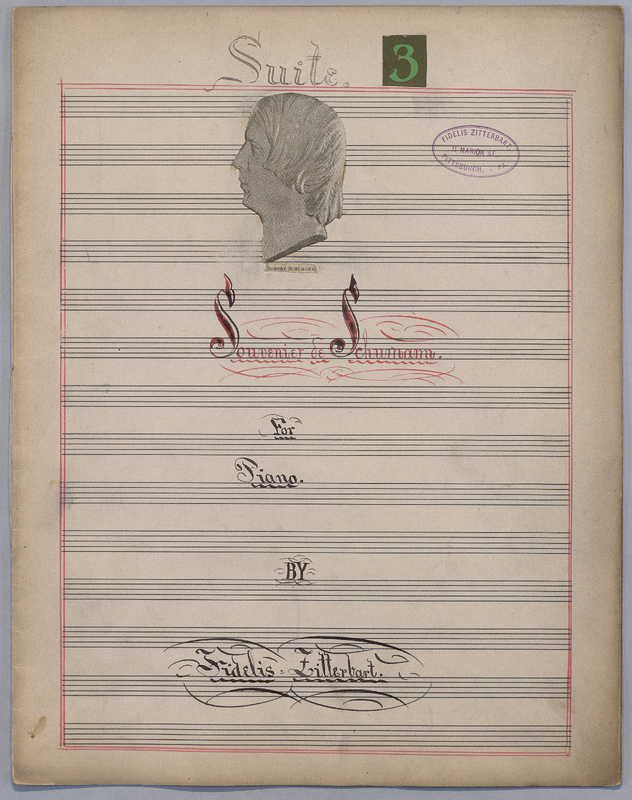 Suite. 3
FIDELIS ZITTERBART,
11 MARION ST.
PITTSBURGH, - PA.
ROBERT SCHUMANN
Souvenier de Schumann.
For
Piano.
BY
Fidelis - Zitterbart.